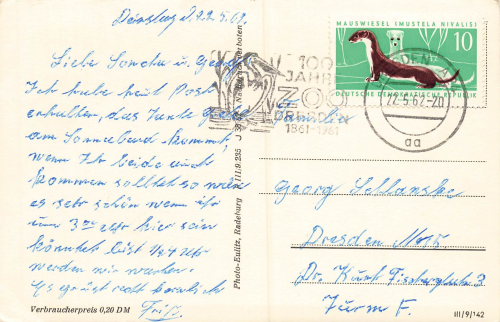 Dienstag d. 22.5.62.
Liebe Sascha u. Georg
Ich habe heut Post
erhalten, das Tante
am Sonnabend kommt
wenn Ihr beide auch
kommen solltet so wäre
es sehr schön wenn ihr
um 3 Uhr hier sein
könntet bis 1/4 4 Uhr
werden wir warten.
Es grüßt recht herzlich
Fritz
Verbraucherpreis 0,20 DM
Photo-Eulitz, Radeburg III/9/235
MAUSWIESEL (MUSTELA NIVALIS)
10
DEUTSCHE DEMOKRATISCHE REPUBLIK
100
JAHR
ZOO
DRESDEN
1861-1961
22-5-62-20
aa
Familie
Georg
Dresden
Dr. Kurt
Turm F.
III/9/142